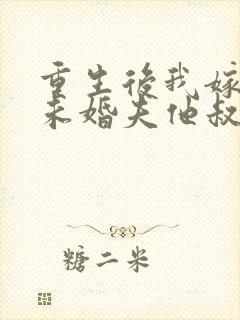 重生後我嫁
未婚夫他叔
糖二米